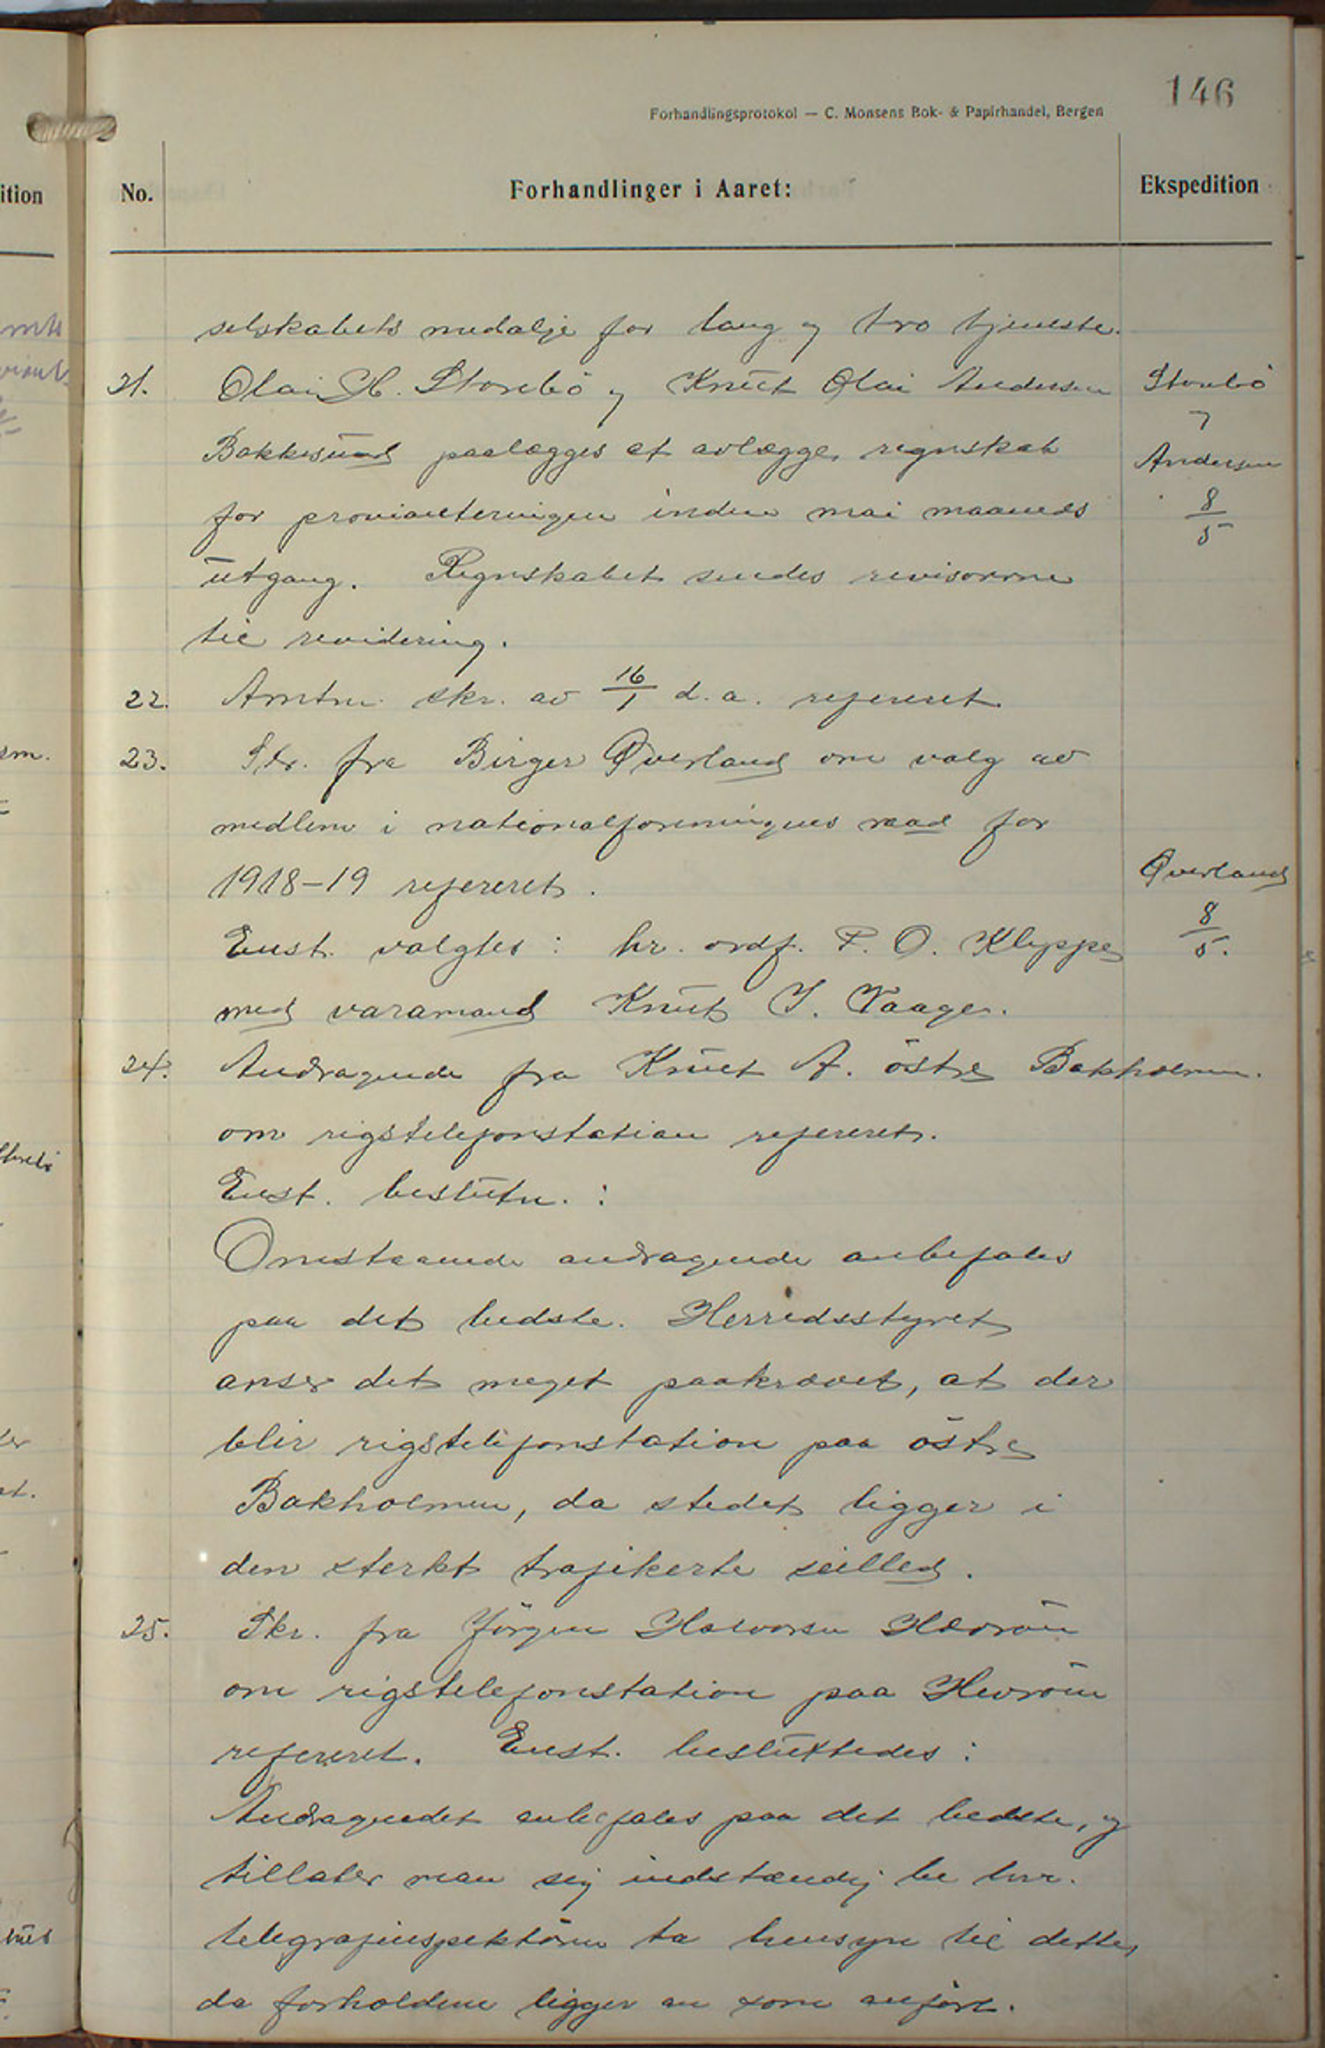 146
Forhandlingsprotokol — C. Monsens Bok- & Papirhandel, Bergen
ition
No.
Forhandlinger i Aaret:
Ekspedition
selskabets medalje for lang og tro tjeneste.
21. Olai H. Storebö og Knut Olai Andersen
Storebö
og
Andersen
8/5
Bakkesund paalægges at avlægge regnskab
for provianteringen inden mai maaneds
utgang. Regnskabet sendes revisorerne
til revidering.
22. Amtm. skr. av 16/1 d.a. refereret
23. Skr. fra Birger Øverland om valg av
medlem i nationalforeningens raad for
1918-19 refereret.
Øverland
8/5.
Enst. valgtes: hr. ordf. P. O. Kleppe
med varamand Knut J. Vaage.
24. Andragende fra Knut A. östre Bakholmen.
om rigstelefonstation refereret.
Enst. beslutn.:
Omstaaende andragende anbefales
paa det bedste. Herredsstyret
anser det meget paakrævet, at der
blir rigstelefonstation paa östre
Bakholmen, da stedet ligger i
den sterkt trafikerte seilled.
25. Skr. fra Jörgen Halvorsen Hævröen
om rigstelefonstation paa Hevröen
refereret. Enst. besluttedes:
Andragendet anbefales paa det bedste, og
tillater man sig indstændig be hrr.
telegrafinspektören ta hensyn til dette,
da forholdene ligger an som anført.